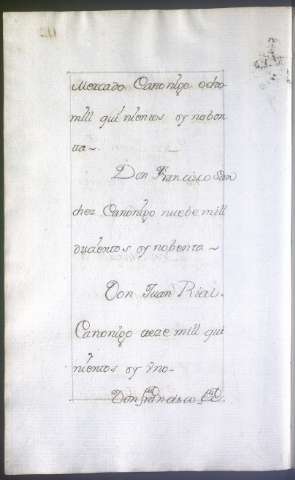 Mercado Canonigo ocho
mill quinientos y noben
ta~.
Don Francisco San
chez Canonigo nuebe mill
ducientos y nobenta~
Don Juan Rial.
Canonigo treze mill qui
nientos y uno~
Don Francisco